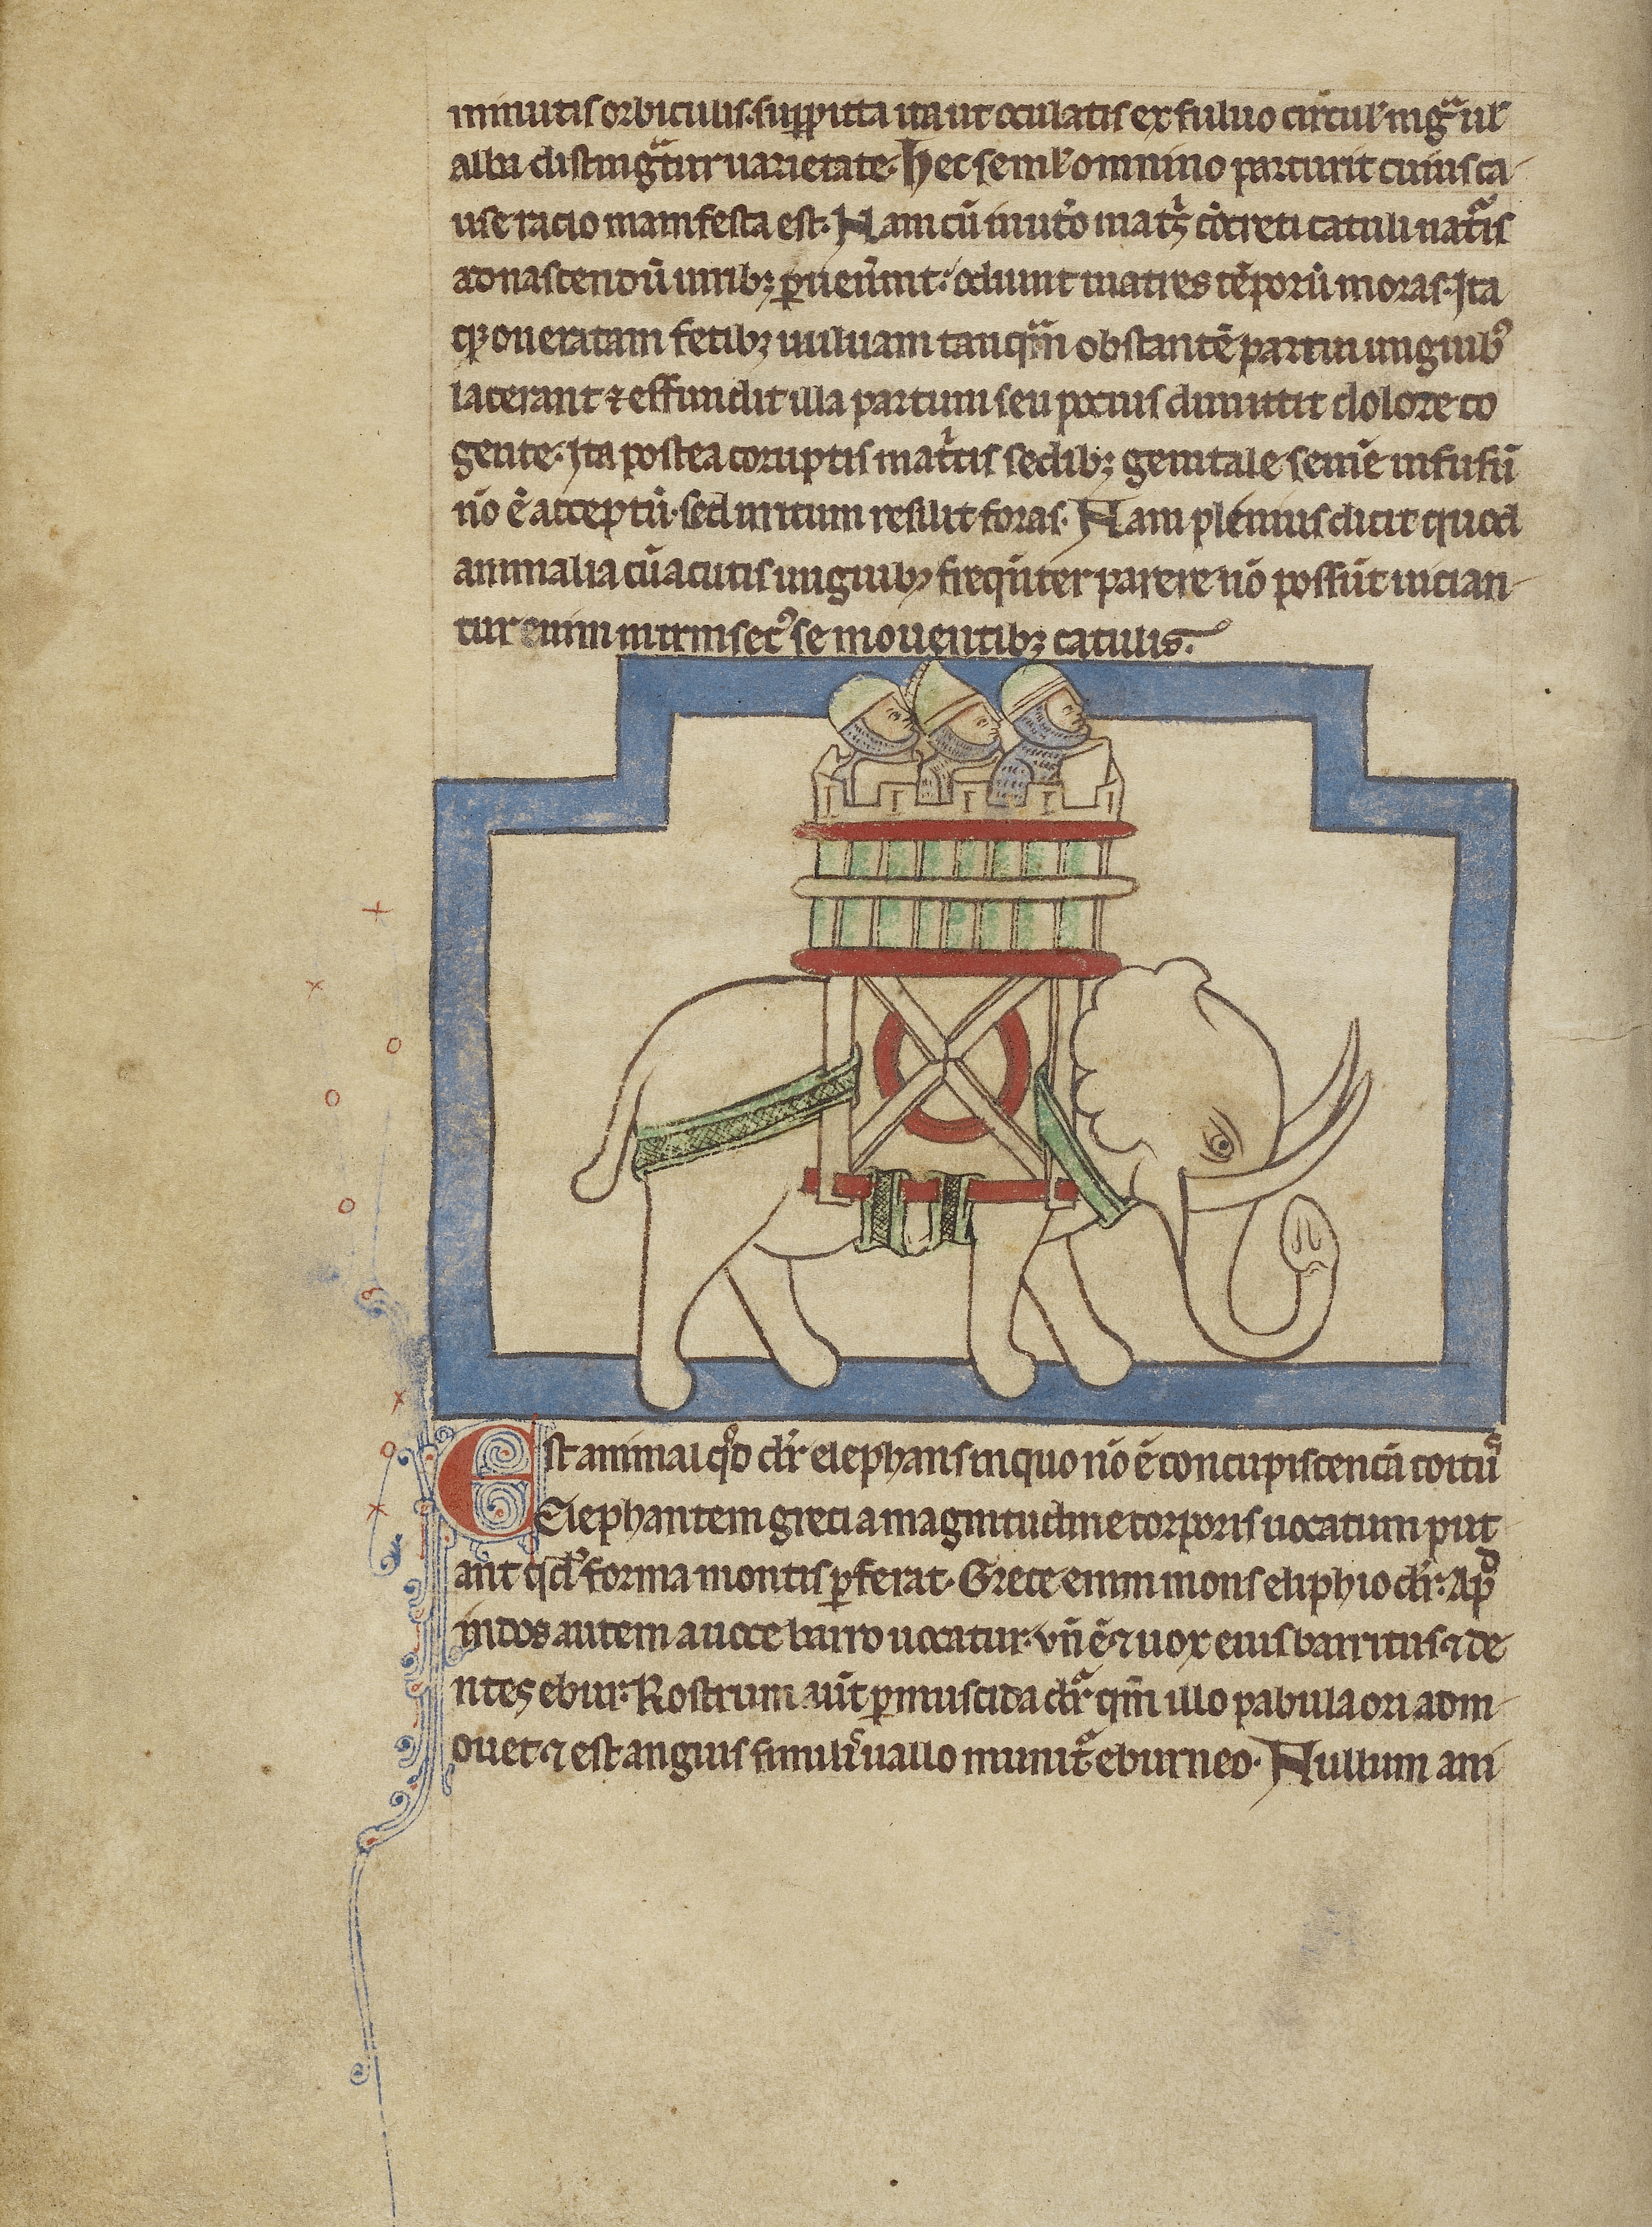 minutis orbiculis suppicta ita ut oculatis ex fuluo circul' nigͣ ul'
alba distingͣtur uarietate. Hec semͥl omnino parturit cuius ca-
use racio manifesta est. Nam cū in utͦo matͥs cōcreti catuli natͣis
ad nascendū uiribꝫ ꝑuen̄int: odiunt matres tēporū moras. Ita
qꝫ oneratam fetibꝫ uuluam tanqͣm obstantē partui unguibꝰ
lacerant ⁊ effundit illa partum seu pocius dimittit dolore co
gente. Ita postea coruptis matͥcis sedibꝫ genitale semē infusū
nō ē acceptū. sed irritum resilit foras. Nam plenius dicit quod
animalia cū acutis unguibꝫ freqn̄ter parere nō possūt uician-
tur enim intrinsecꝰ se mouentibꝫ catulis.
Est animal qͦd dr̄ elephans in quo nō ē concupiscencia coitꝰ
Elephantem greci a magnitudine corporis uocatum put-
ant qd' forma montis ꝑferat. Grece enim mons eliphio dr̄. Apͩ
indos autem a uoce barro uocatur. vn̄ ē ⁊ uox eius barritus. ⁊ de-
ntes ebur. Rostrum aūt ꝓmuscida dr̄ qm̄ illo pabula ori adm-
ouet ⁊ est anguis similis uallo munitͦ eburneo. Nullum ani